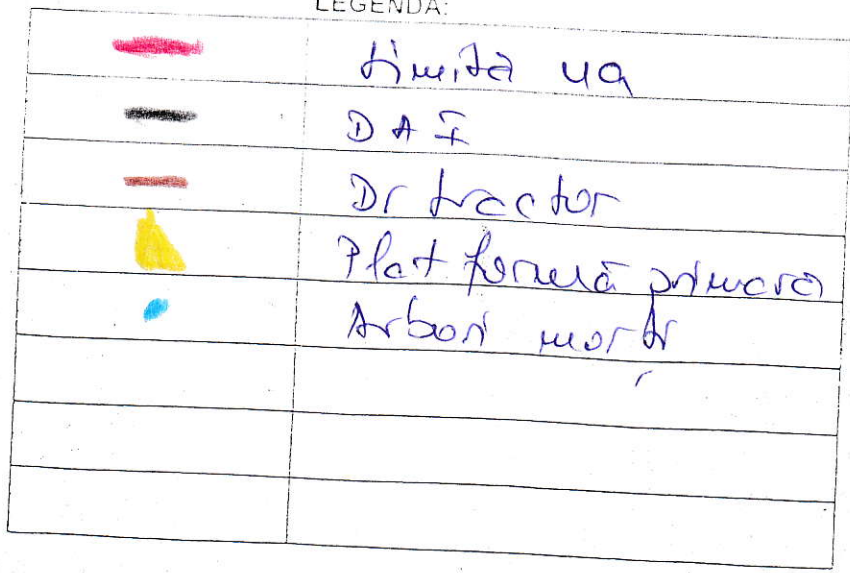 LEGENDA:
Limită ua
D A F
Dr tractor
Platformă primară
Arbori morți